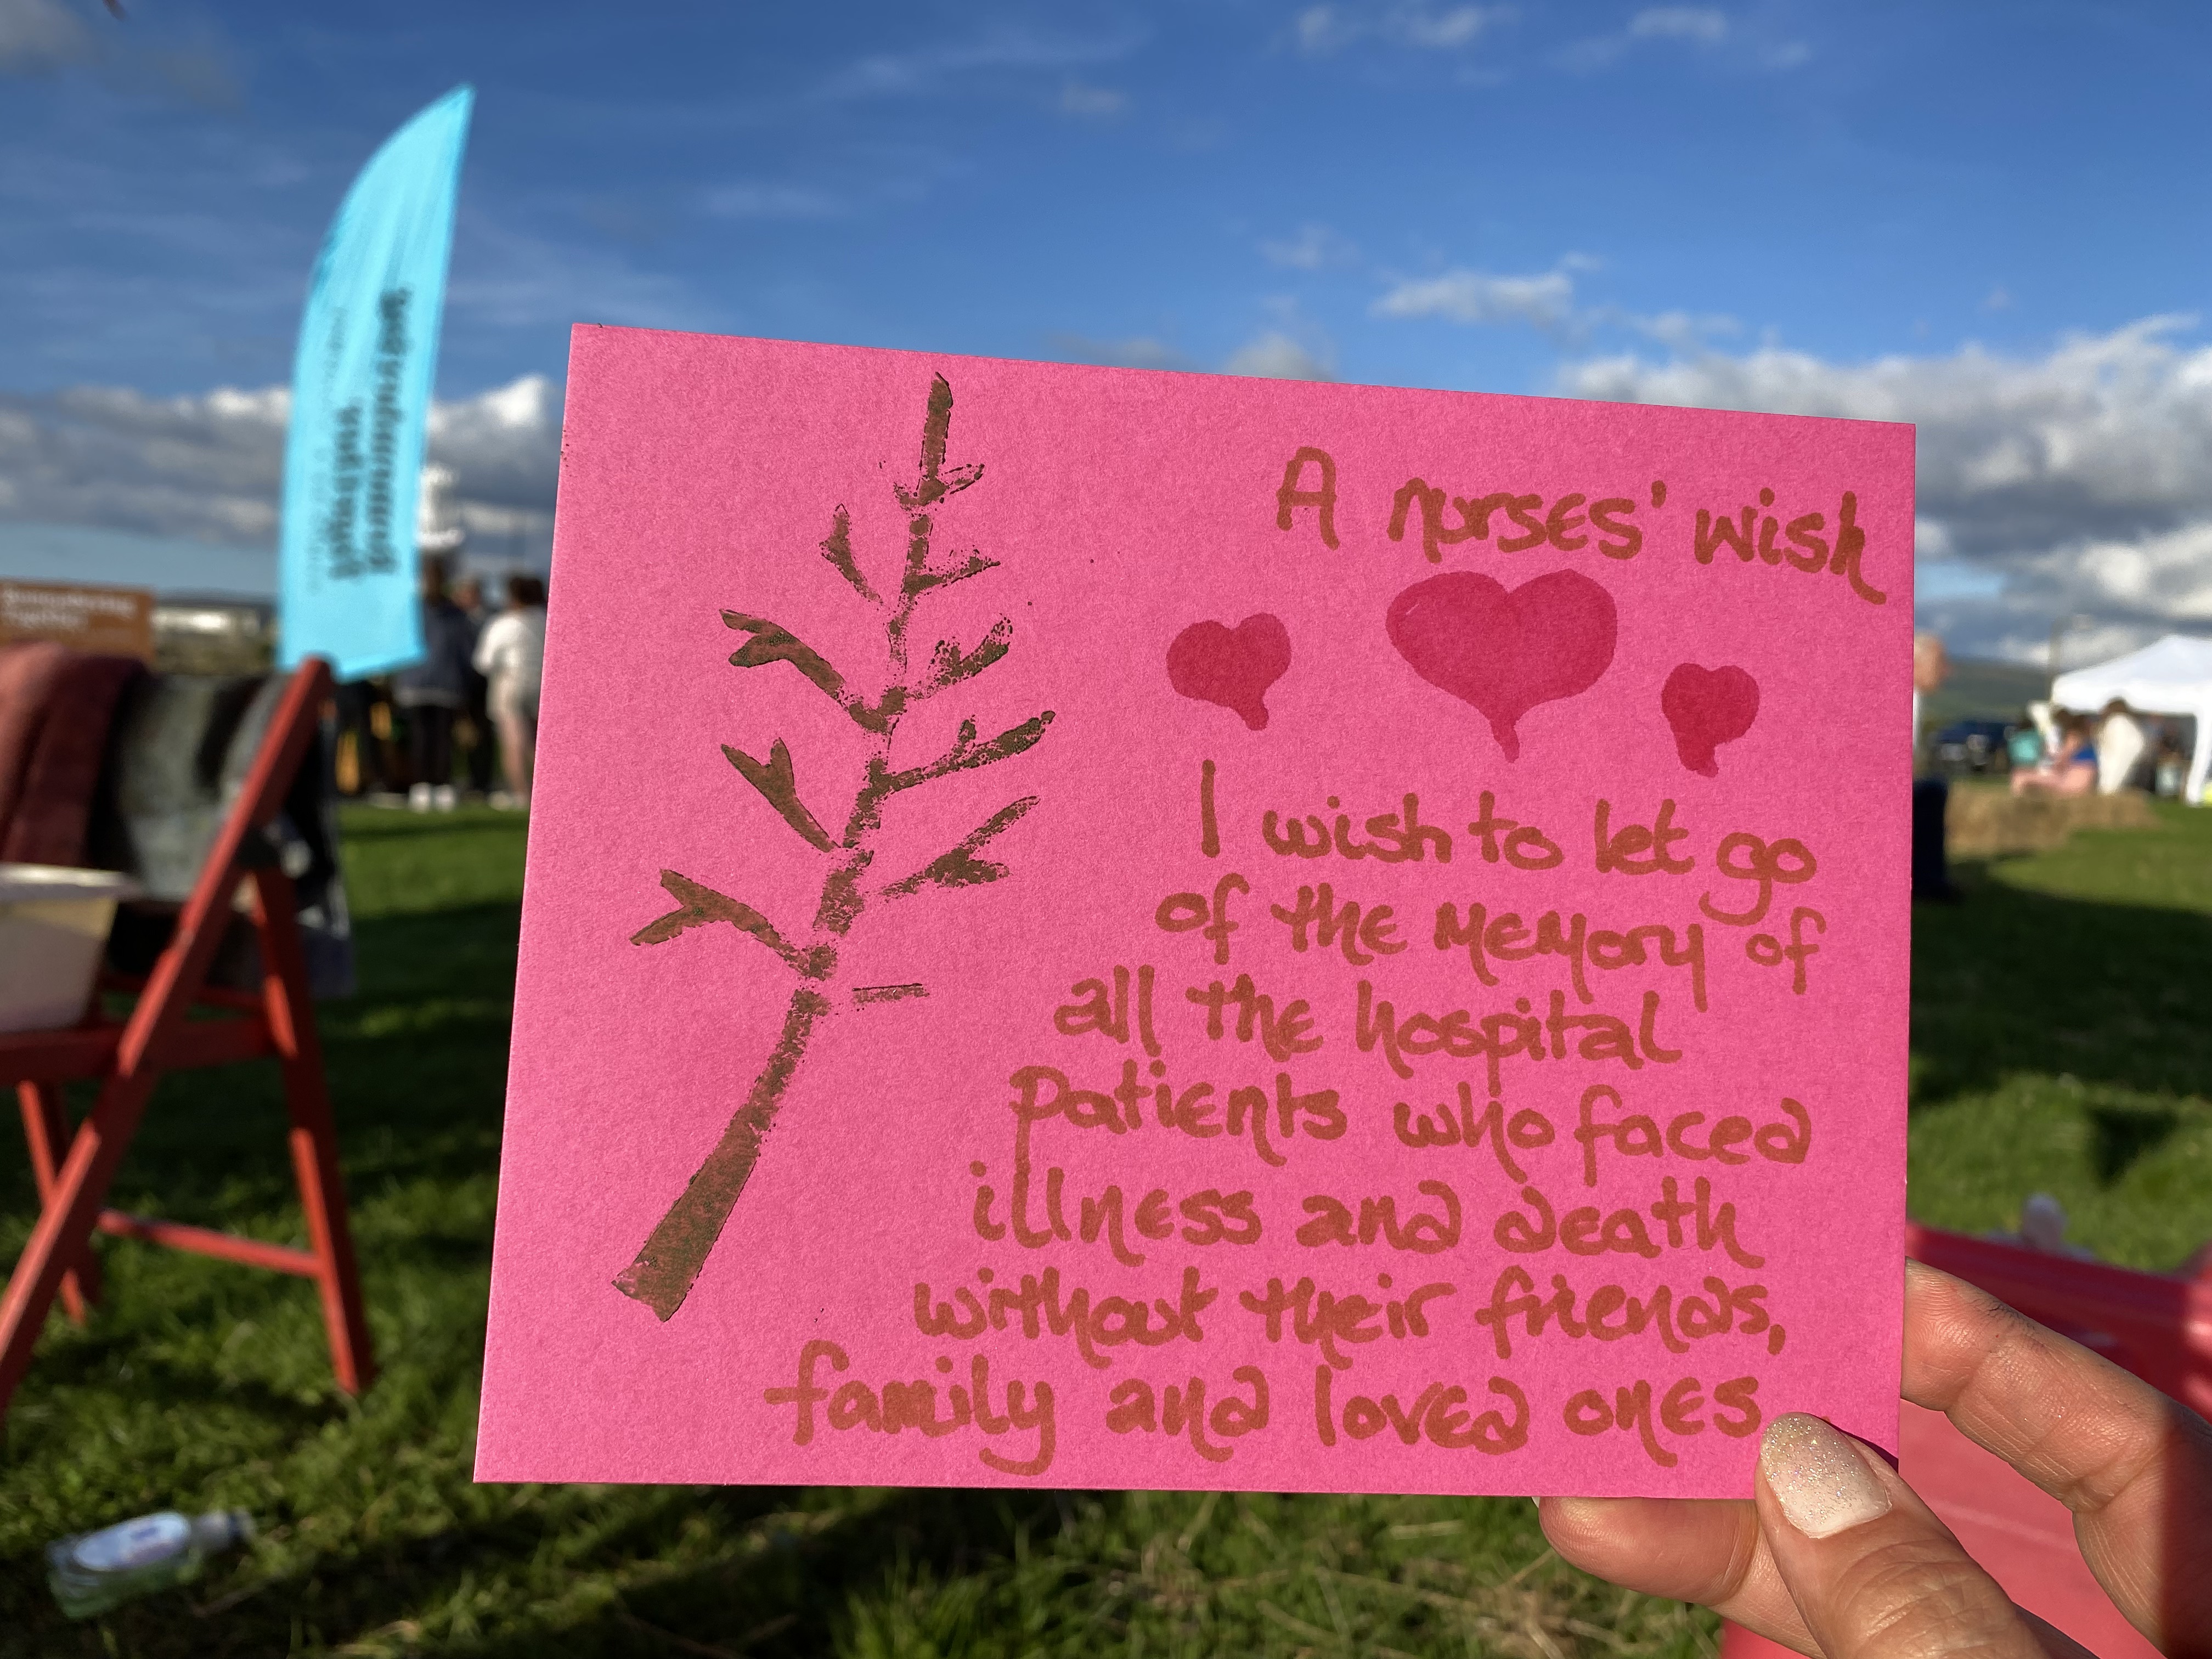 A nurses' wish
I wish to let go
of the memory of
all the hospital
patients who faced
illness and death
without their friends,
family and loved ones